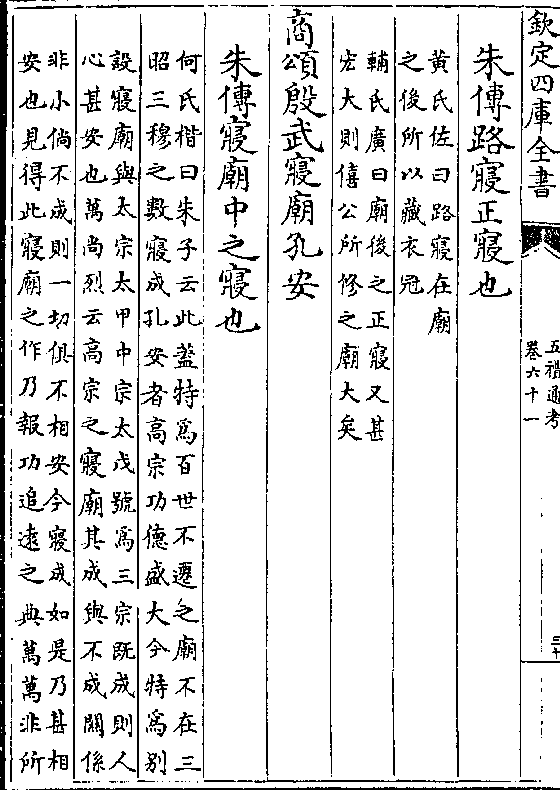 欽定四庫全書
五禮通考
卷六十一
三十
朱傳路寢正寢也
黄氏佐曰路寢在廟
之後所以藏衣冠
輔氏廣曰廟後之正寢又甚
宏大則僖公所修之廟大矣
商頌殷武寢廟孔安
朱傳寢廟中之寢也
何氏楷曰朱子云此蓋特為百世不遷之廟不在三
昭三穆之數寢成孔安者高宗功德盛大今特為别
設寢廟與太宗太甲中宗太戊號為三宗既成則人
心甚安也萬尚烈云高宗之寢廟其成與不成關係
非小倘不成則一切俱不相安今寢成如是乃甚相
安也見得此寢廟之作乃報功追遠之典萬萬非所